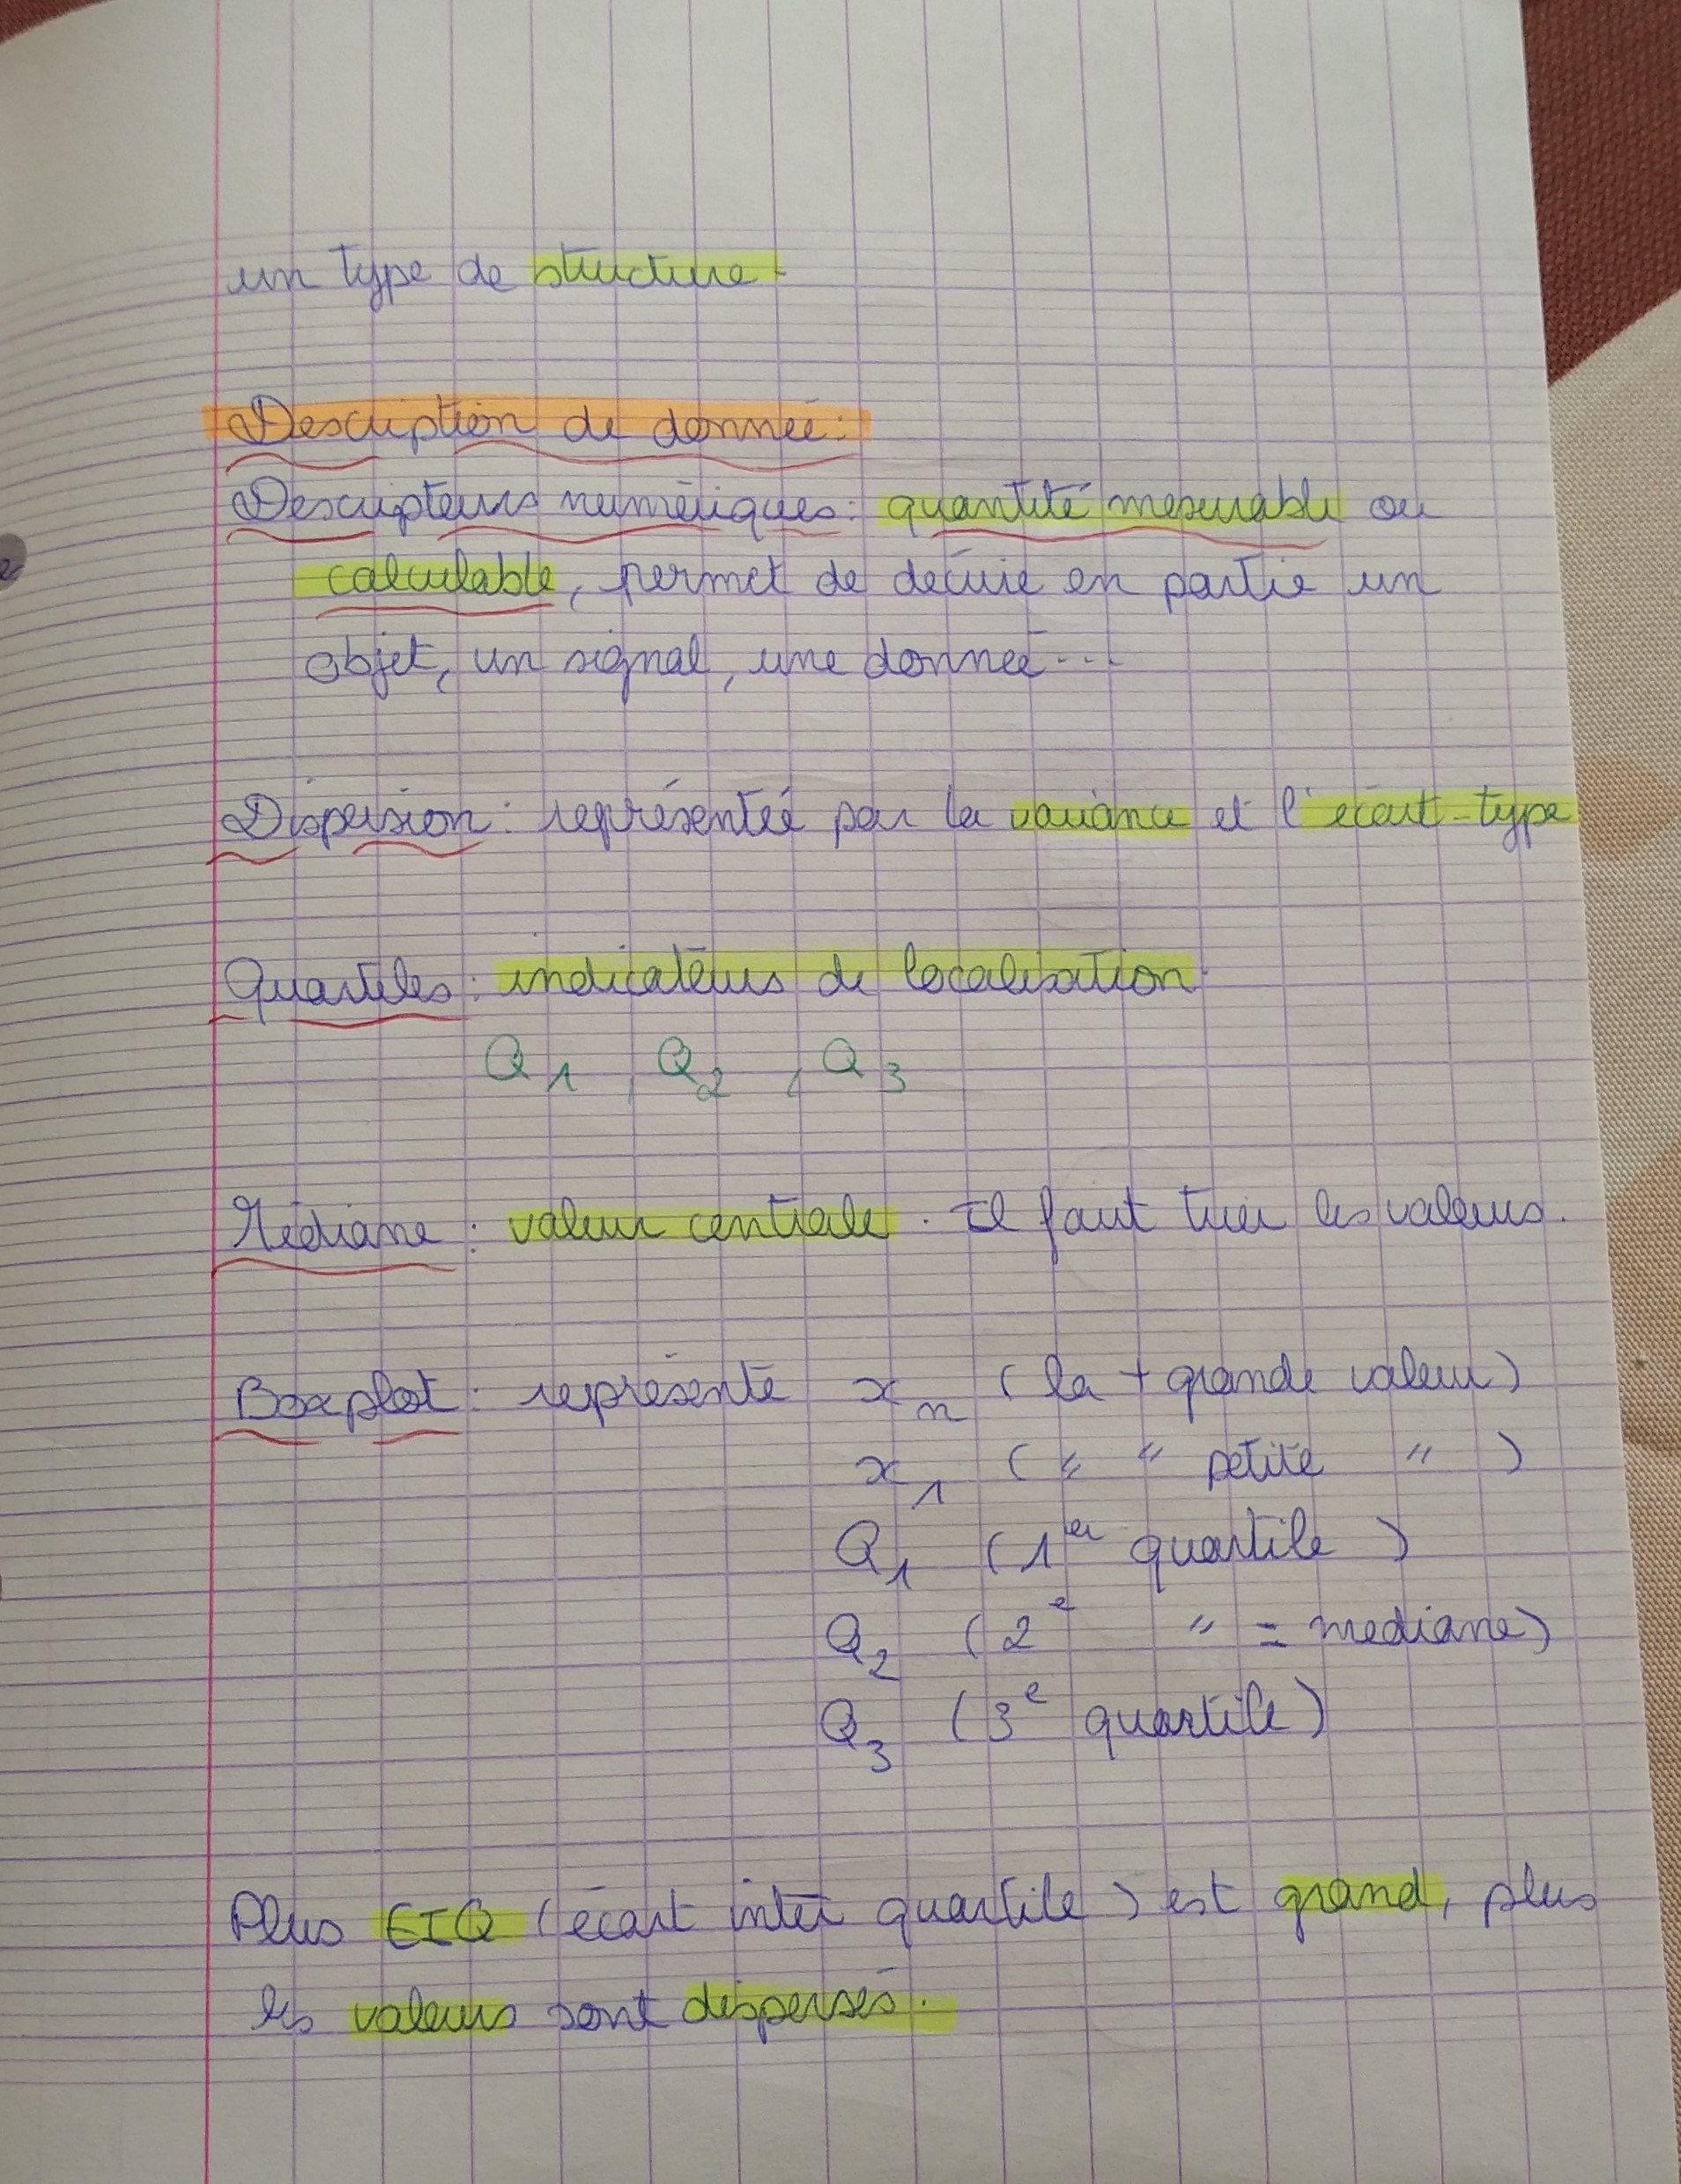 un type de structure.
Description de donnée:
Descripteurs numériques: quantité mesurable ou
calculable, permet de décrire en partie un
objet, un signal, une donnée...
Dispersion: représentée par la variance et l'écart-type
Quartiles: indicateurs de localisation.
Q1, Q2, Q3
Médiane: valeur centrale. Il faut trier les valeurs.
Boxplot: représente xn (la + grande valeur)
x1 (" " petite ")
Q1 (1er quartile)
Q2 (2e " = mediane)
Q3 (3e quartile)
Plus EIQ (écart inter quartile) est grand, plus
les valeurs sont dispersés.